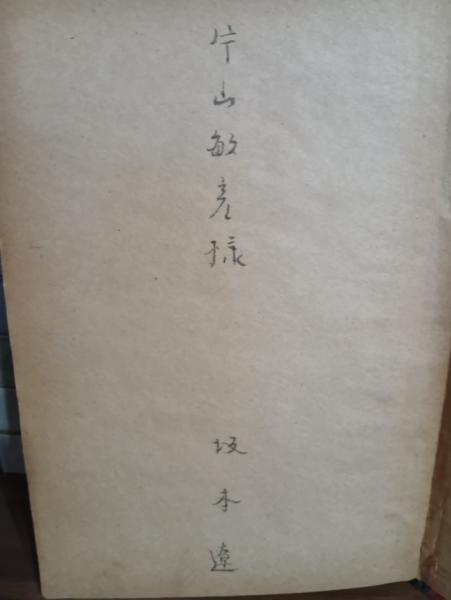 片山敏彦様
坂本遼